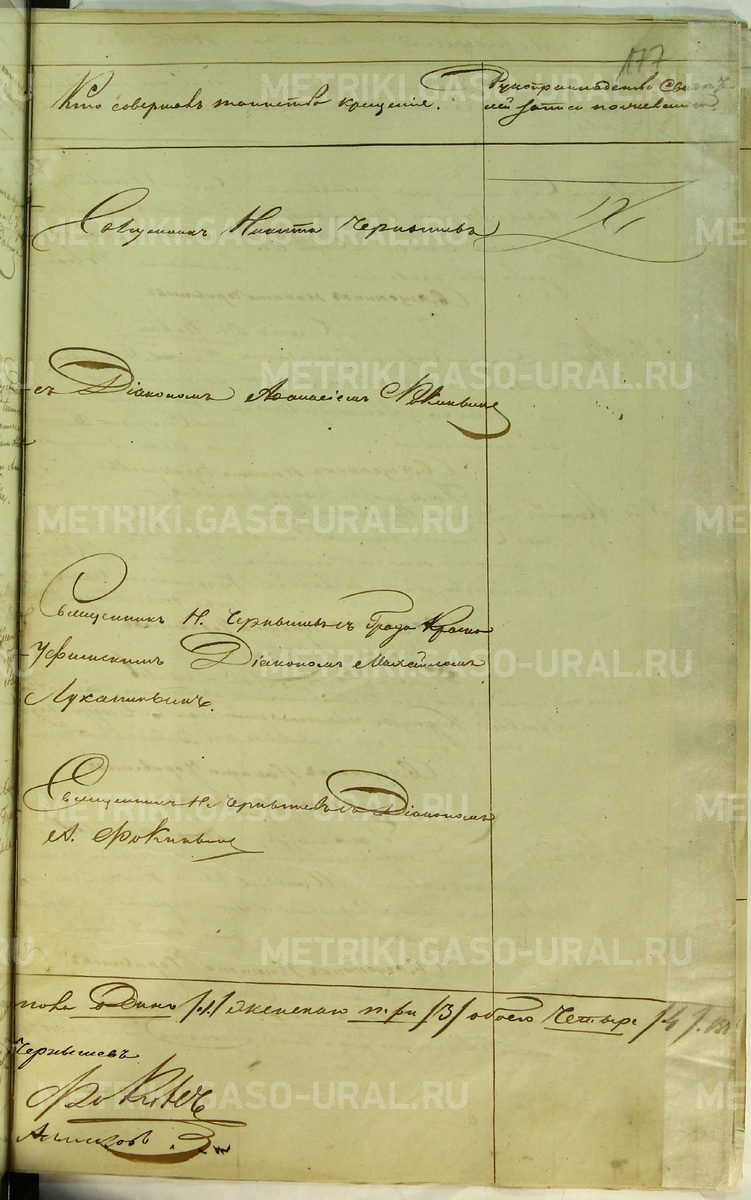 177
Кто совершалъ таинство крещенія.
Рукоприкладство Свидѣте
лей записи по желанію.
Священникъ Никита Чернышевъ
съ Діакономъ Аѳанасіемъ Фокинымъ
Священникъ Н. Чернышевъ съ Града Красно
Уфимскимъ Діакономъ Михаиломъ
Лукинымъ.
Священникъ Н. Чернышевъ съ Діакономъ
А. Фокинымъ
пола Одинъ /1/ женскаго три /3/ обоего Четыре /4/.
Чернышевъ
Фокинъ
METRIKI.GASO-URAL.RU